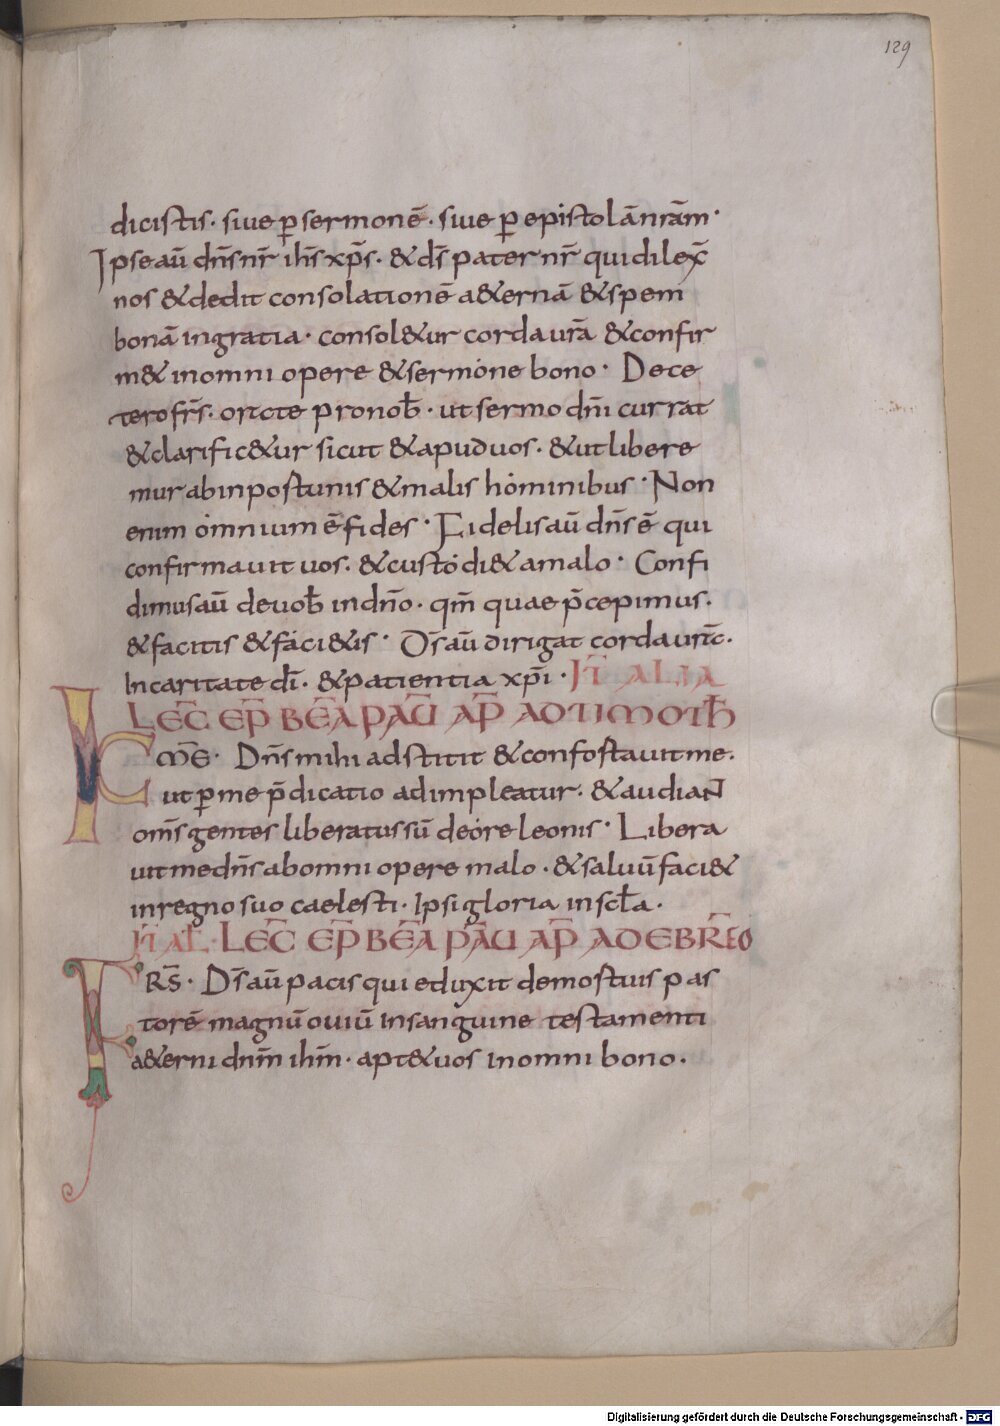 129
dicistis · siue ꝑ sermonē · siue ꝑ epistolā nr̄am ·
Ipse aū dn̄s nr̄ ih̄s xp̄s · & d̄s pater nr̄ qui dilex̄
nos & dedit consolationē a&ernā & spem
bonā in gratia · consol&ur corda ur̄a & confir
m& in omni opere & sermone bono · De ce
tero fr̄s · orate pro nob̄ · ut sermo dn̄i currat
& clarific&ur sicut & apud uos · & ut libere
mur ab inportunis & malis hominibus · Non
enim omnium ē fides · Fidelis aū dn̄s ē qui
confirmauit uos · & custodi& a malo · Confi
dimus aū de uob̄ in dn̄o · qm̄ quae p̄cepimus ·
& facitis & faci&is · Dn̄s aū dirigat corda
In caritate dī · & patientia xp̄i · IT̄ ALIA
LEC̄ EP̄ BĒA PAŪ AP̄ AD TIMOTH̄
K M̄E · Dn̄s mihi adstitit & confortauit me ·
ut ꝑ me p̄dicatio adimpleatur · & audiaN
om̄s gentes liberatus sū de ore leonis · Libera
uit me dn̄s ab omni opere malo · & saluū faci&
in regno suo caelesti · Ipsi gloria in scl̄a ·
IT̄ AL̄ · LEC̄ EP̄ BĒA PAŪ AP̄ AD EBR̄EO
F RS̄ · D̄s aū pacis qui eduxit de mortuis pas
torē magnū ouiū in sanguine testamenti
a&erni dnm̄ ihm̄ · apt& uos in omni bono ·
Digitalisierung gefördert durch die Deutsche Forschungsgemeinschaft - DFG